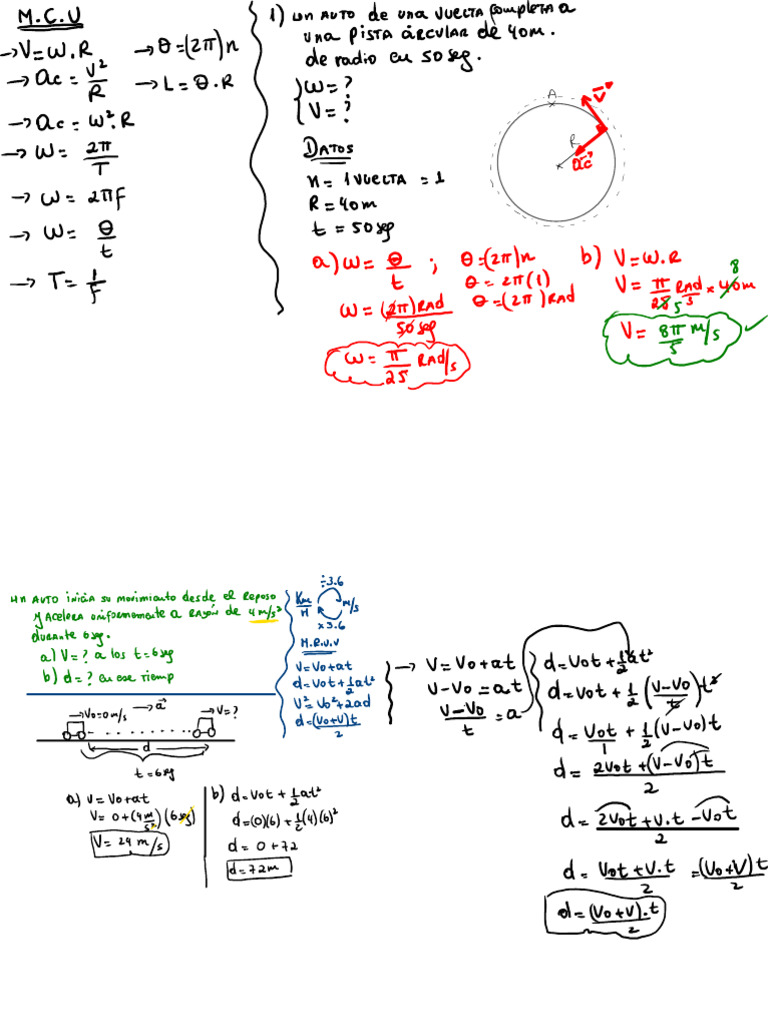 M.C.U
→ V = ω.R → θ = (2π)n
→ ac = V²/R → L = θ.R
→ ac = ω².R
→ ω = 2π/T
→ ω = 2πf
→ ω = θ/t
→ T = 1/f
1) un auto de una vuelta completa a
una pista circular de 40m.
de radio en 50seg.
ω = ?
V = ?
DATOS
n = 1 vuelta = 1
R = 40m
t = 50seg
A
V⃗
R
ac⃗
a) ω = θ/t ; θ = (2π)n
θ = 2π(1)
ω = (2π)RAD/50seg θ = (2π)RAD
ω = π/25 RAD/s
b) V = ω.R
V = π/25 RAD/s × 40m
5 8
V = 8π/5 m/s ✓
un auto inicia su movimiento desde el reposo
y acelera uniformemente a razón de 4 m/s²
durante 6seg.
a) V = ? a los t = 6seg
b) d = ? en ese tiemp
Vo=0m/s → a⃗ → V=?
d
t = 6seg
÷3.6
Km/H m/s
×3.6
M.R.U.V
V = Vo + at
d = Vot + 1/2 at²
V² = Vo² + 2ad
d = (Vo+V)t/2
a) V = Vo + at
V = 0 + (4m/s²)(6seg)
V = 24 m/s
b) d = Vot + 1/2 at²
d = (0)(6) + 1/2(4)(6)²
d = 0 + 72
d = 72m
→ V = Vo + at
V - Vo = at
V - Vo/t = a
d = Vot + 1/2 at²
d = Vot + 1/2 (V-Vo/t) t²
d = Vot/1 + 1/2 (V-Vo)t
d = 2Vot + (V-Vo)t/2
d = 2Vot + V.t - Vot/2
d = Vot + V.t/2 = (Vo+V)t/2
d = (Vo+V).t/2